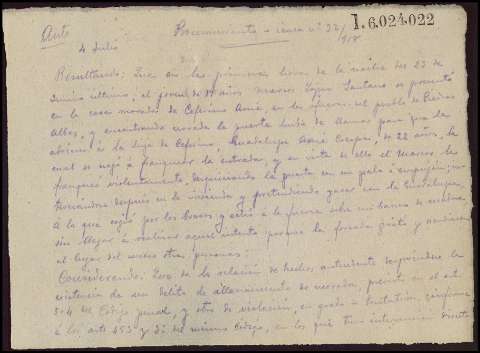 1.6.024.022
Auto Procesamiento - causa nº 32/918
4 Julio
Resultando: Que en las primeras horas de la noche del 23 de
Junio último, el joven de 19 años Marcos López Santana se presentó
en la casa morada de Ceferino Amié, en las afueras del pueblo de Piedras
Albas, y encontrando cerrada la puerta hubo de llamar para que la
abriera á la hija de Ceferino, Guadalupe Amié Crespo, de 22 años, la
cual se negó á franquear la entrada, y en vista de ello el Marcos la
franqueó violentamente, desquiciando la puerta con un palo á empujón; in-
ternándose después en la vivienda y pretendiendo yacer con la Guadalupe,
á la que cogió por los brazos y asió á la fuerza sobre un banco de madera,
sin llegar á realizar aquel intento porque la forzada gritó y acudieron
al lugar del suceso otras personas.
Considerando: Que de la relación de hechos antecedente se desprende la
existencia de un delito de allanamiento de morada, previsto en el art.
504 del Código penal, y otro de violación, en grado de tentativa, conforme
á los arts 453 y 3º del mismo Código, en los que tuvo intervención directa